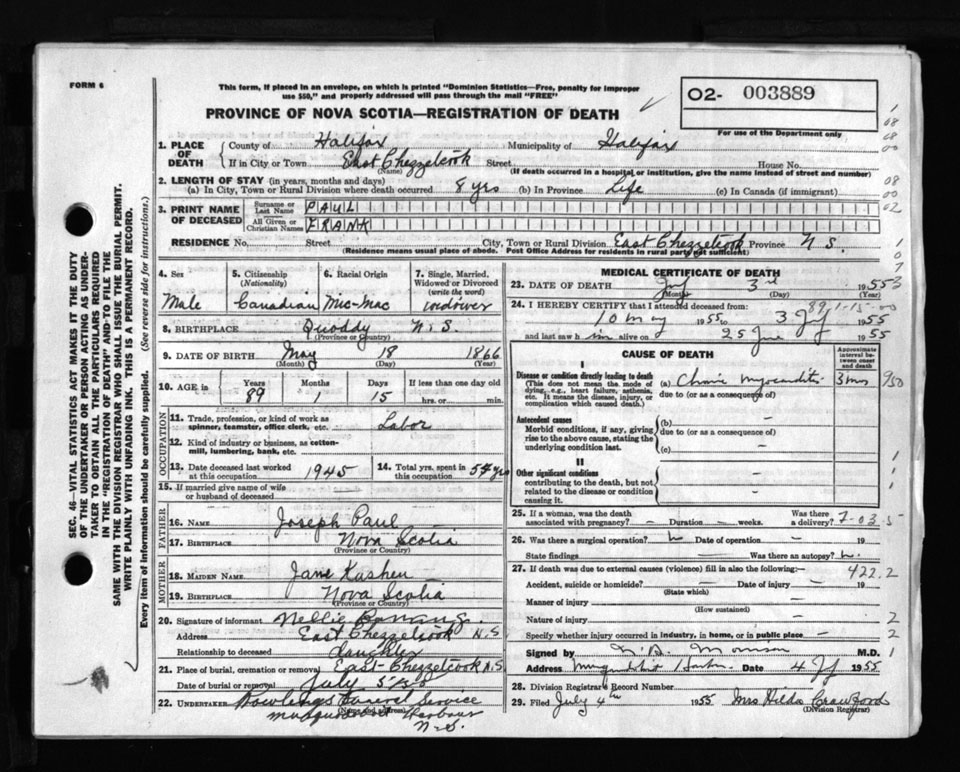 FORM 6
This form, if placed in an envelope, on which is printed "Dominion Statistics—Free, penalty for improper
use $50," and properly addressed will pass through the mail "FREE"
PROVINCE OF NOVA SCOTIA—REGISTRATION OF DEATH
02- 003889
For use of the Department only
1. PLACE OF DEATH
County of Halifax Municipality of Halifax
If in City or Town East Chezzetcook Street House No.
(Name) (If death occurred in a hospital or institution, give the name instead of street and number)
2. LENGTH OF STAY (in years, months and days)
(a) In City, Town or Rural Division where death occurred 8 yrs (b) In Province Life (c) In Canada (if immigrant)
3. PRINT NAME OF DECEASED
Surname or Last Name PAUL
All Given or Christian Names FRANK
RESIDENCE No. Street City, Town or Rural Division East Chezzetcook Province N S.
(Residence means usual place of abode. Post Office Address for residents in rural parts not sufficient)
4. Sex
Male
5. Citizenship (Nationality)
Canadian
6. Racial Origin
Mic-Mac
7. Single, Married, Widowed or Divorced (write the word)
widower
8. BIRTHPLACE Quoddy N.S.
(Province or Country)
9. DATE OF BIRTH May 18 1866
(Month) (Day) (Year)
10. AGE
Years 89
Months 1
Days 15
If less than one day old
hrs. or min.
OCCUPATION
11. Trade, profession, or kind of work as
spinner, teamster, office clerk, etc. Labor
12. Kind of industry or business, as cotton-
mill, lumbering, bank, etc.
13. Date deceased last worked
at this occupation 1945
14. Total yrs. spent in
this occupation 54 yrs
15. If married give name of wife
or husband of deceased
FATHER
16. NAME Joseph Paul
17. BIRTHPLACE Nova Scotia
(Province or Country)
MOTHER
18. MAIDEN NAME Jane
19. BIRTHPLACE Nova Scotia
(Province or Country)
20. Signature of informant Nellie
Address East Chezzetcook N.S
Relationship to deceased daughter
21. Place of burial, cremation or removal East-Chezzetcook N.S
Date of burial or removal July 5/55
22. UNDERTAKER Funeral Service
(Name and address)
Musquodoboit Harbour
N.S.
MEDICAL CERTIFICATE OF DEATH
23. DATE OF DEATH 3rd 1955
(Month) (Day) (Year)
24. I HEREBY CERTIFY that I attended deceased from:
10 May 1955 to 3 1955
and last saw him alive on 25 June 1955
CAUSE OF DEATH
Approximate interval between onset and death
I
Disease or condition directly leading to death
(This does not mean the mode of dying, e.g., heart failure, asthenia, etc. It means the disease, injury, or complication which caused death.)
(a) 3 mos
due to (or as a consequence of)
Antecedent causes
Morbid conditions, if any, giving rise to the above cause, stating the underlying condition last.
(b) —
due to (or as a consequence of)
(c) —
II
Other significant conditions
contributing to the death, but not related to the disease or condition causing it.
25. If a woman, was the death
associated with pregnancy? — Duration — weeks. Was there a delivery?
26. Was there a surgical operation? Date of operation — 19
State findings — Was there an autopsy?
27. If death was due to external causes (violence) fill in also the following:— 422.2
Accident, suicide or homicide? — Date of injury — 19
(State which)
Manner of injury —
(How sustained)
Nature of injury —
Specify whether injury occurred in industry, in home, or in public place —
Signed by Morrison M.D.
Address Date 4 1955
28. Division Registrar's Record Number
29. Filed July 4th 1955 Mrs Hilda Crawford
(Division Registrar)
SEC. 46—VITAL STATISTICS ACT MAKES IT THE DUTY
OF THE UNDERTAKER OR PERSON ACTING AS UNDER-
TAKER TO OBTAIN ALL THE PARTICULARS REQUIRED
IN THE "REGISTRATION OF DEATH" AND TO FILE THE
SAME WITH THE DIVISION REGISTRAR WHO SHALL ISSUE THE BURIAL PERMIT.
WRITE PLAINLY WITH UNFADING INK. THIS IS A PERMANENT RECORD.
Every item of information should be carefully supplied. (See reverse side for instructions.)